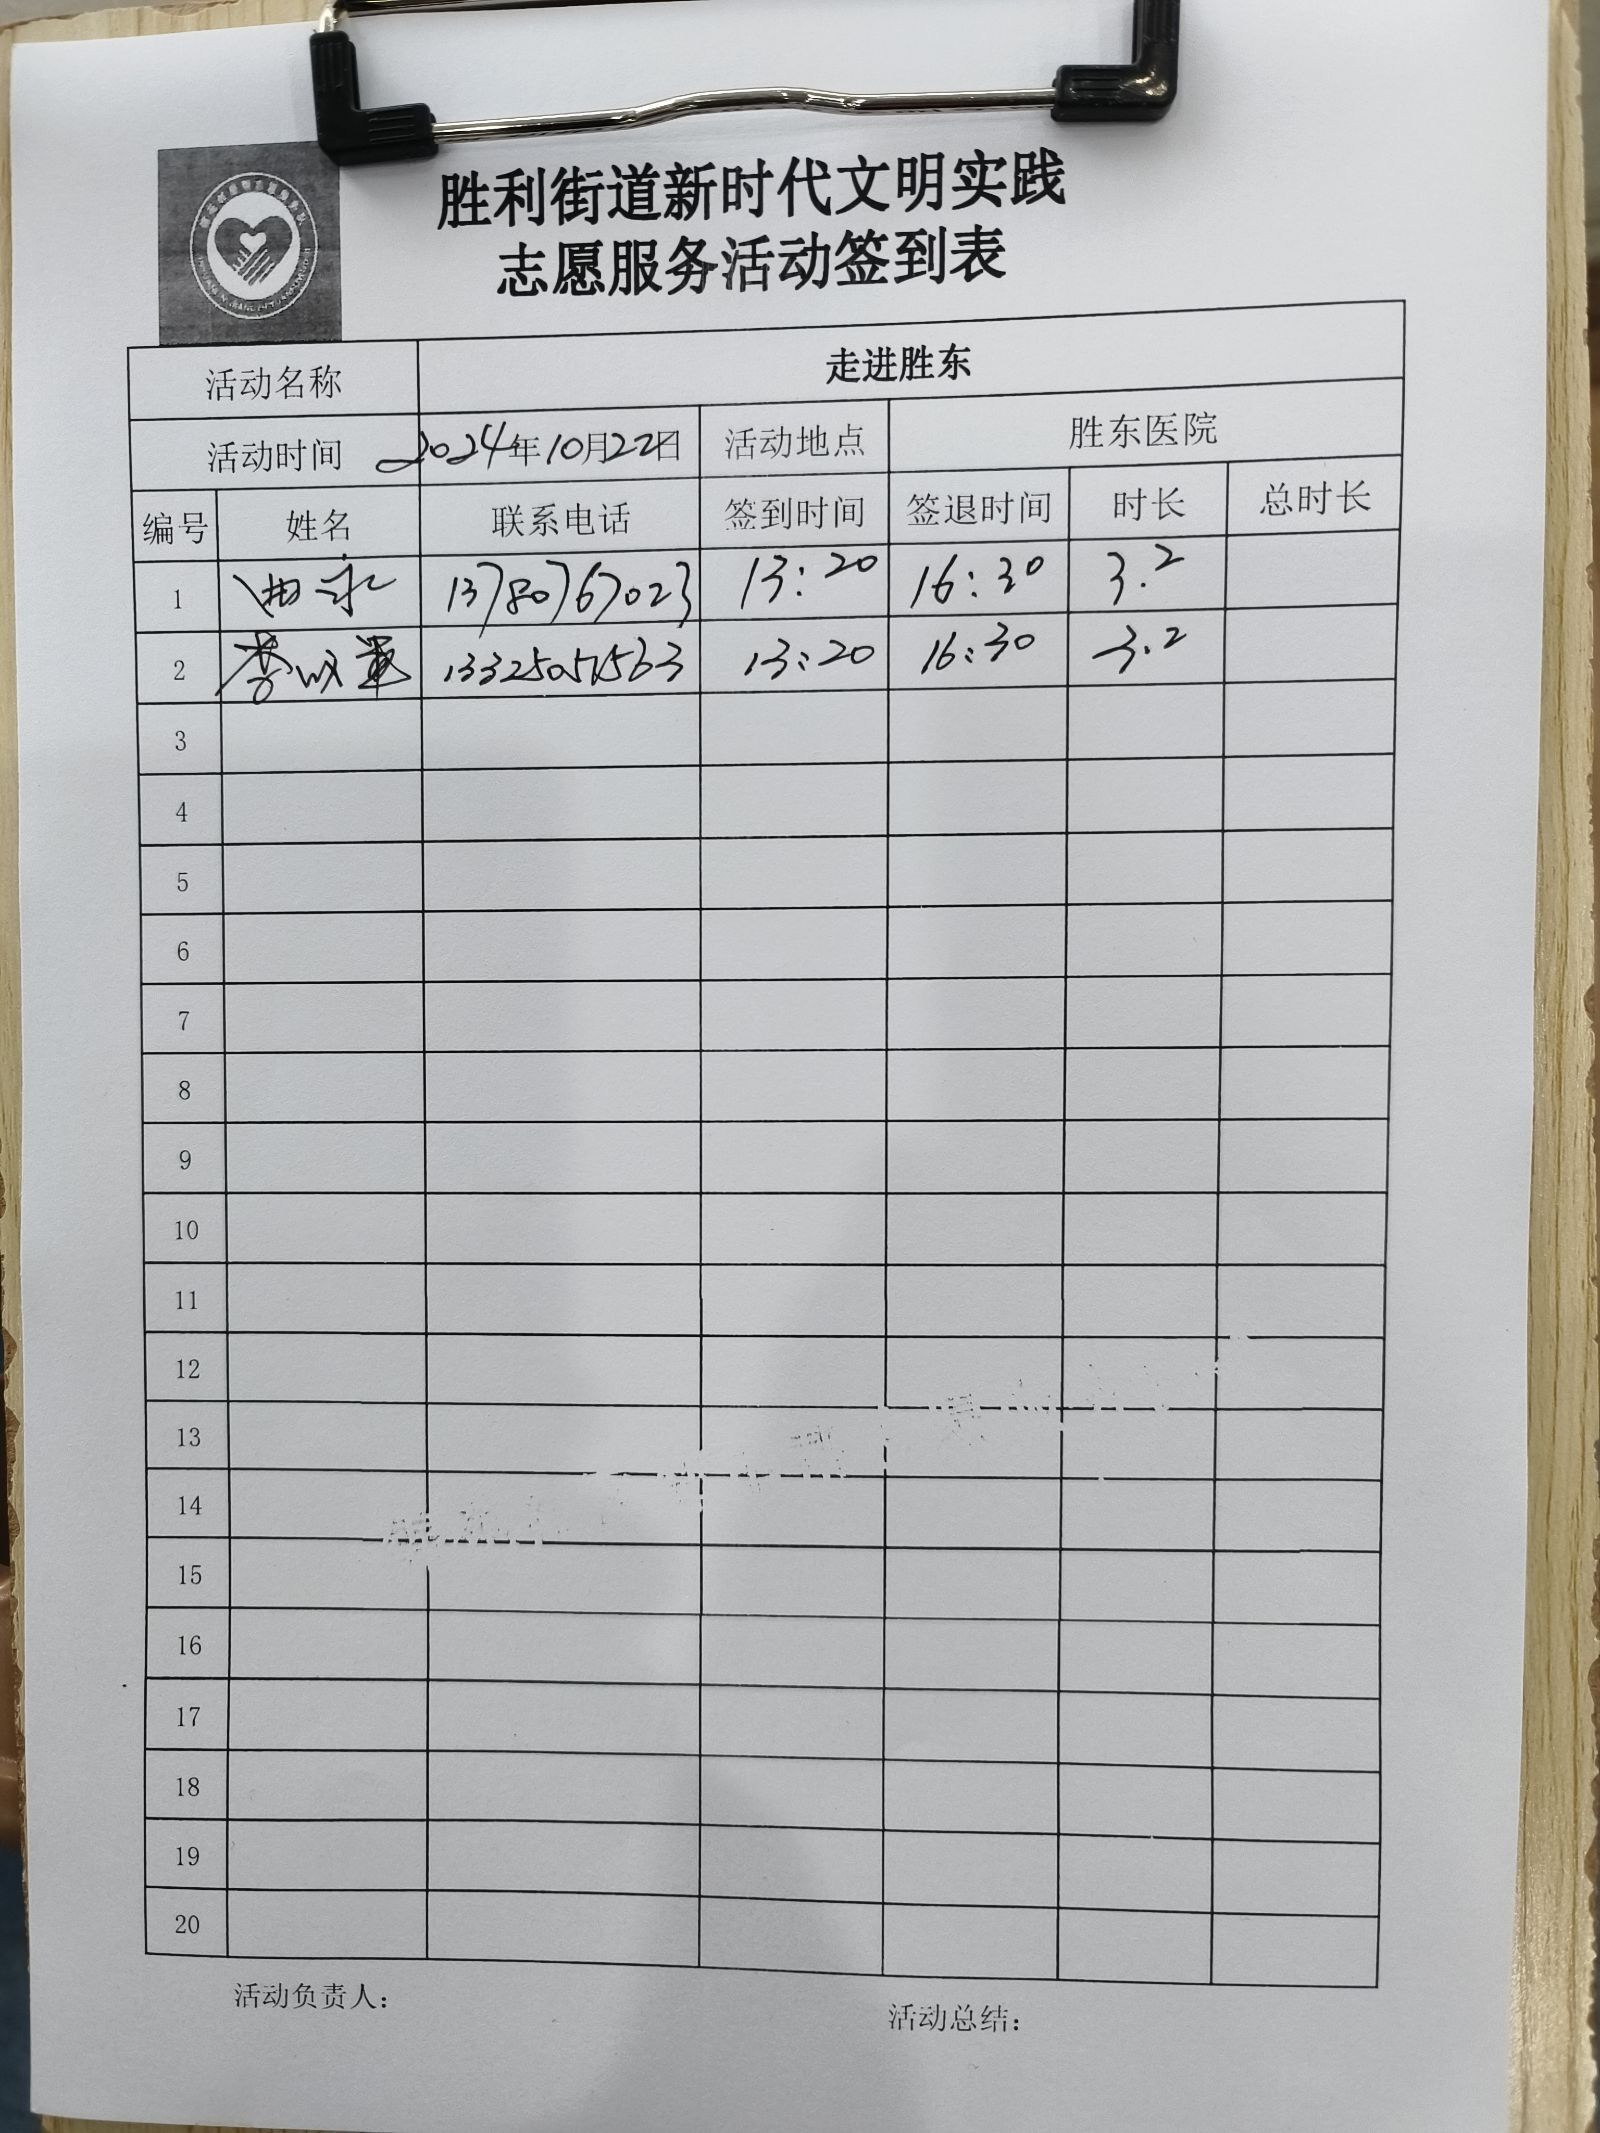 胜利街道新时代文明实践
志愿服务活动签到表
活动名称 走进胜东
活动时间 2024年10月22日 活动地点 胜东医院
编号 姓名 联系电话 签到时间 签退时间 时长 总时长
1 13780767023 13:20 16:30 3.2
2 13325051563 13:20 16:30 3.2
3
4
5
6
7
8
9
10
11
12
13
14
15
16
17
18
19
20
活动负责人： 活动总结：